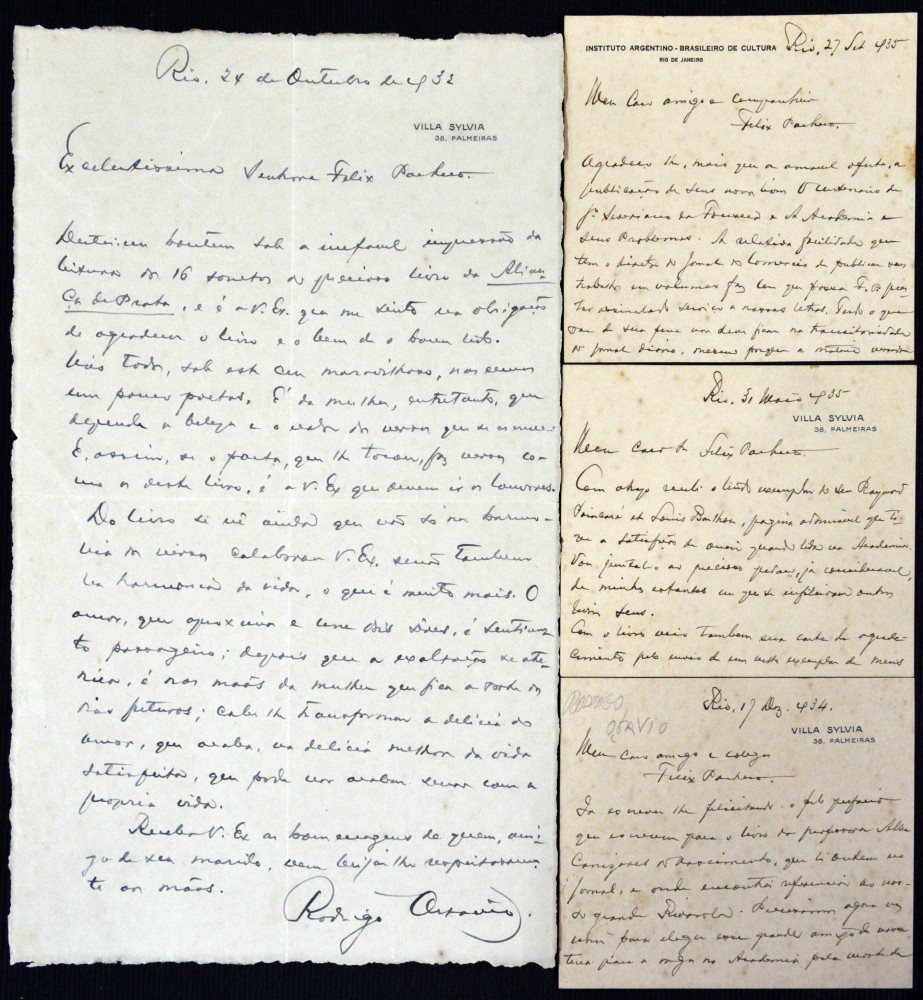 Rio, 24 de Outubro de 932
VILLA SYLVIA
38, PALMEIRAS
Excelentissima Senhora Felix Pacheco.
Deitei-me hontem sob a inefavel impressão da
leitura dos 16 sonetos do precioso livro da Alian-
ça de Prata, e é a V. Ex. que me sinto na obrigação
de agradecer o livro e o bem de o haver lido.
Nós todos, sob este céu maravilhoso, nascemos
um pouco poetas. É da mulher, entretanto, que
depende a beleza e o valor dos versos que se escreve.
E, assim, se o poeta, que lhe tocou, faz versos co-
mo os deste livro, é a V. Ex que devem ir os louvores.
Do livro se vê ainda que não só na harmo-
nia dos versos colaborou V. Ex. senão tambem
na harmonia da vida, o que é muito mais. O
amor, que aproxima e une dois sêres, é sentimen-
to passageiro; depois que a exaltação se ate-
núa, é nas mãos da mulher que fica a sorte dos
dias futuros; cabe lhe transformar a delicia do
amor, que acaba, na delicia melhor da vida
satisfeita, que pode não acabar senão com a
propria vida.
Receba V. Ex as homenagens de quem, ami-
go de seu marido, vem beijar lhe respeitosamen-
te as mãos.
Rodrigo Octavio.
INSTITUTO ARGENTINO - BRASILEIRO DE CULTURA
RIO DE JANEIRO
Rio, 27 Set 935
Meu Caro amigo e companheiro
Felix Pacheco.
Agradeço lh, mais que a amavel oferta, a
publicação de seus novos livros O Centenario de
Jº Severiano da Fonseca e A Academia e
seus Problemas. A relativa facilidade que
tem o director do Jornal do Comercio de publicar seus
trabalhos em volumes faz com que possa F. P. pres-
tar assinalado serviço a nossas letras. Tudo o que
sae de sua pena não deve ficar na transitoriedade
do jornal diario, mesmo porque a materia versada
Rio, 31 Maio 935
VILLA SYLVIA
38, PALMEIRAS
Meu caro Felix Pacheco.
Com abraço recebi o lindo exemplar do seu Raymond
Poincaré et Louis Barthou, pagina admiravel que ti-
ve a satisfação de ouvir quando lida na Academia.
Vou junta-lo ao precioso pedaço, já consideravel,
de minhas estantes em que se enfileiram outros
livros seus.
Com o livro veio tambem sua carta de agrade-
cimento pelo envio de um exemplar de meus
RODRIGO
OTAVIO
Rio, 17 Dez. 934.
VILLA SYLVIA
38, PALMEIRAS
Meu caro amigo e colega
Felix Pacheco.
Ia escrever lhe felicitando-o pelo prefacio
que escreveu para o livro da professora Alba
Cañizares do Nascimento, que li hontem no
Jornal, e onde encontrei referencia ao nos-
so grande Rivarola. Precisamos agora
para eleger esse grande amigo de nossa
terra para a vaga na Academia pela morte de